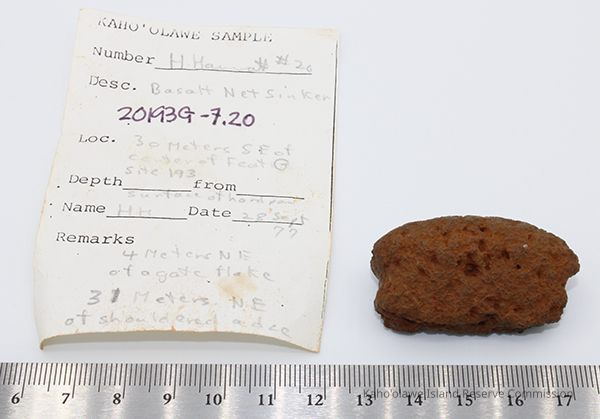 KAHO'OLAWE SAMPLE
Number H. Hanna # #20
Desc. Basalt Net Sinker
20193G-7.20
Loc. 30 Meters SE of
center of Feat G
Site 193
Depth from
surface of hardpan
Name HH Date 28 Sept
77
Remarks
4 Meters NE
of agate flake
31 Meters NE
of shouldered adze
Kaho'olawe Island Reserve Commission
6 7 8 9 10 11 12 13 14 15 16 17